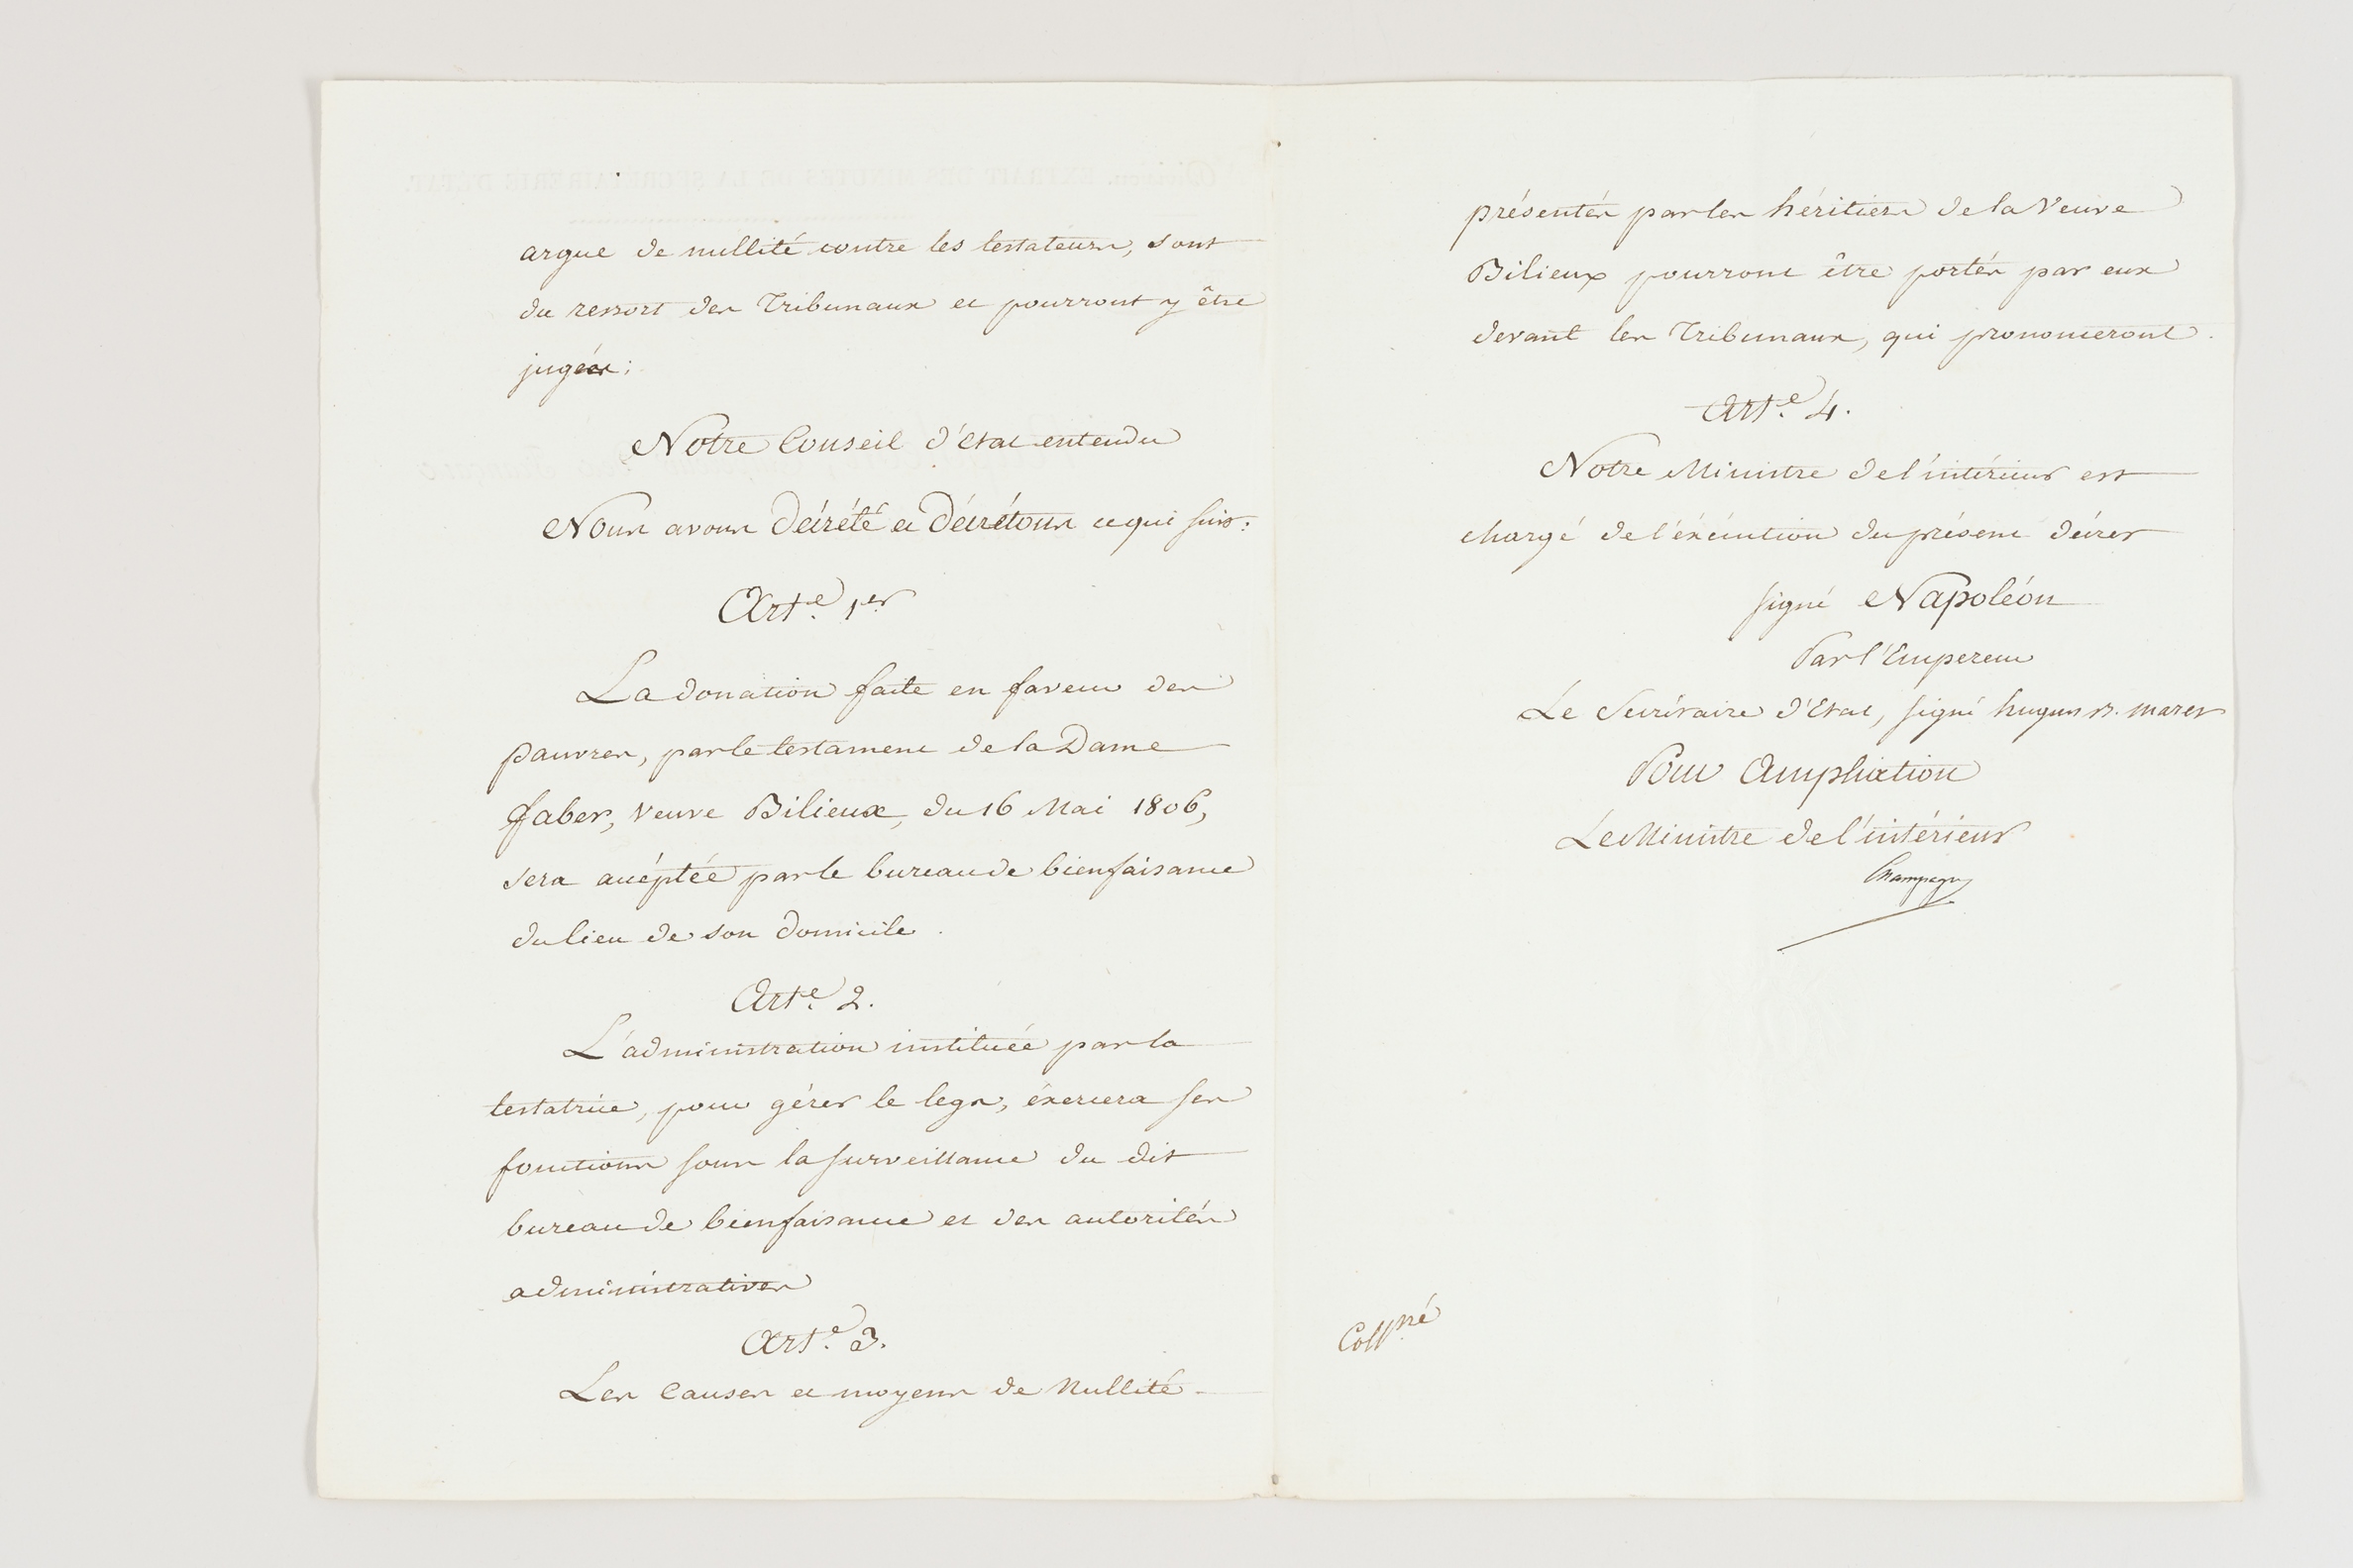 argue de nullité contre les testateurs, sont
du ressort des Tribunaux et pourront y être
jugées;
Notre Conseil d'Etat entendu
Nous avons Décrété et Décrétons ce qui suit:
Art.e 1.er
La donation faite en faveur des
pauvres, par le testament de la Dame
faber, Veuve Bilieux, du 16 Mai 1806,
sera accéptée par le bureau de bienfaisance
du lieu de son Domicile.
Art.e 2.
L'administration instituée par la
testatrice, pour gérer le legs, éxercera ses
fonctions sous la surveillance du dit
bureau de bienfaisance et des autorités
administratives
Art.e 3.
Les Causes et moyens de Nullité
présentés par les héritiers de la Veuve
Bilieux pourront être portés par eux
devant les Tribunaux, qui prononceront.
Art.e 4.
Notre Ministre de l'intérieur est
chargé de l'éxécution du présent décret
signé Napoléon
Par l'Empereur
Le Secrétaire d'Etat, signé hugues B. maret
Pour Ampliation
Le Ministre de l'intérieur
Champagny
Coll.né